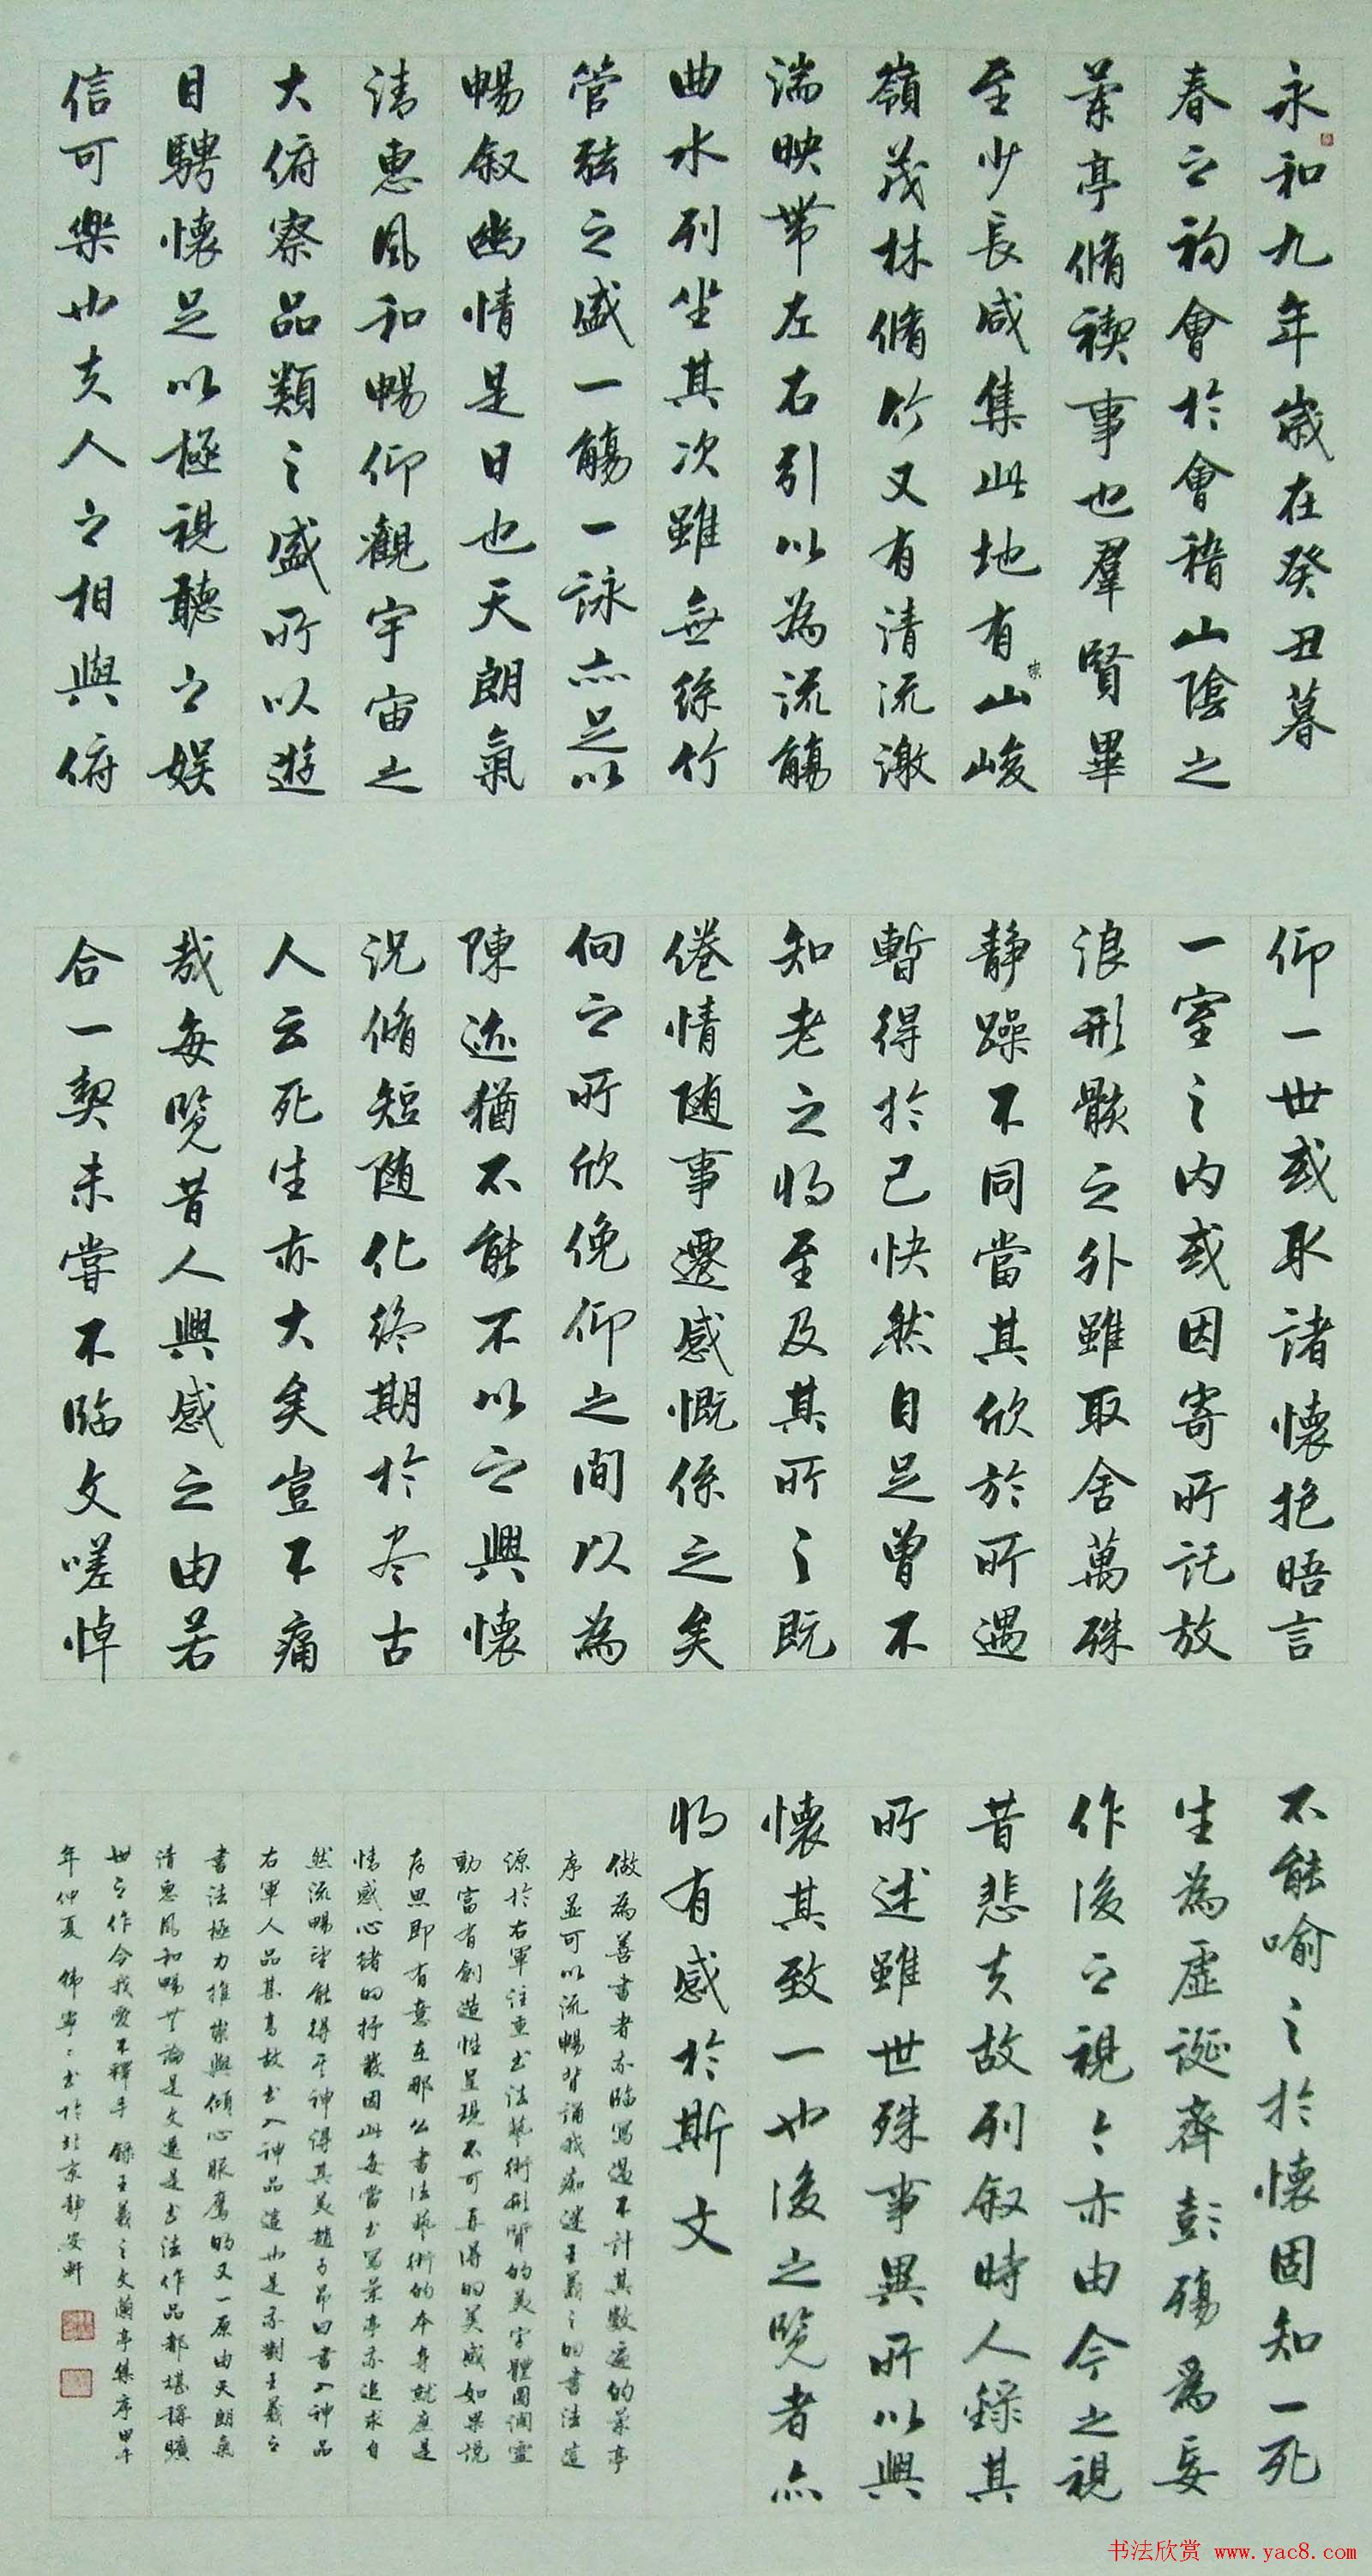 永和九年歲在癸丑暮
春之初會於會稽山陰之
蘭亭脩禊事也羣賢畢
至少長咸集此地有山峻
崇
嶺茂林脩竹又有清流激
湍映帶左右引以為流觴
曲水列坐其次雖無絲竹
管弦之盛一觴一詠亦足以
暢敘幽情是日也天朗氣
清惠風和暢仰觀宇宙之
大俯察品類之盛所以遊
目騁懷足以極視聽之娛
信可樂也夫人之相與俯
仰一世或取諸懷抱晤言
一室之內或因寄所託放
浪形骸之外雖取舍萬殊
靜躁不同當其欣於所遇
暫得於己快然自足曾不
知老之將至及其所之既
倦情隨事遷感慨係之矣
向之所欣俛仰之間以為
陳迹猶不能不以之興懷
況脩短隨化終期於盡古
人云死生亦大矣豈不痛
哉每覽昔人興感之由若
合一契未嘗不臨文嗟悼
不能喻之於懷固知一死
生為虛誕齊彭殤為妄
作後之視々亦由今之視
昔悲夫故列敘時人錄其
所述雖世殊事異所以興
懷其致一也後之覽者亦
將有感於斯文
做為善書者亦臨寫過不計其數遍的蘭亭
序並可以流暢背誦我痴迷王羲之的書法這
源於右軍注重書法藝術形質的美字體圓潤靈
動富有創造性呈現不可再得的美感如果說
存思即有意在那么書法藝術的本身就應是
情感心緒的抒發因此每當書寫蘭亭亦追求自
然流暢望能得其神得其美趙子昂曰書入神品
右軍人品甚高故書入神品這也是我對王羲之
書法極力推崇與傾心服膺的又一原由天朗氣
清惠風和暢無論是文還是書法作品都堪稱曠
世之作令我愛不釋手錄王羲之文蘭亭集序甲午
年仲夏 寧寧書於北京靜安軒
书法欣赏 www.yac8.com